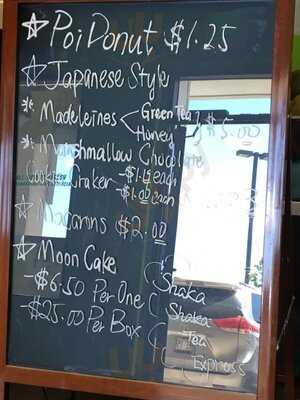 ☆ Poi Donut $1.25
☆ Japanese Style
* Madeleines < Green Tea
Honey ] $5.00
* Marshmallow Chocolate
Cookie Shaker -$1.15 each
-$1.00 each
* Macarons $2.00
☆ Moon Cake
-$6.50 Per One
-$25.00 Per Box
( Shaka
( Shaka
( Tea
( Express